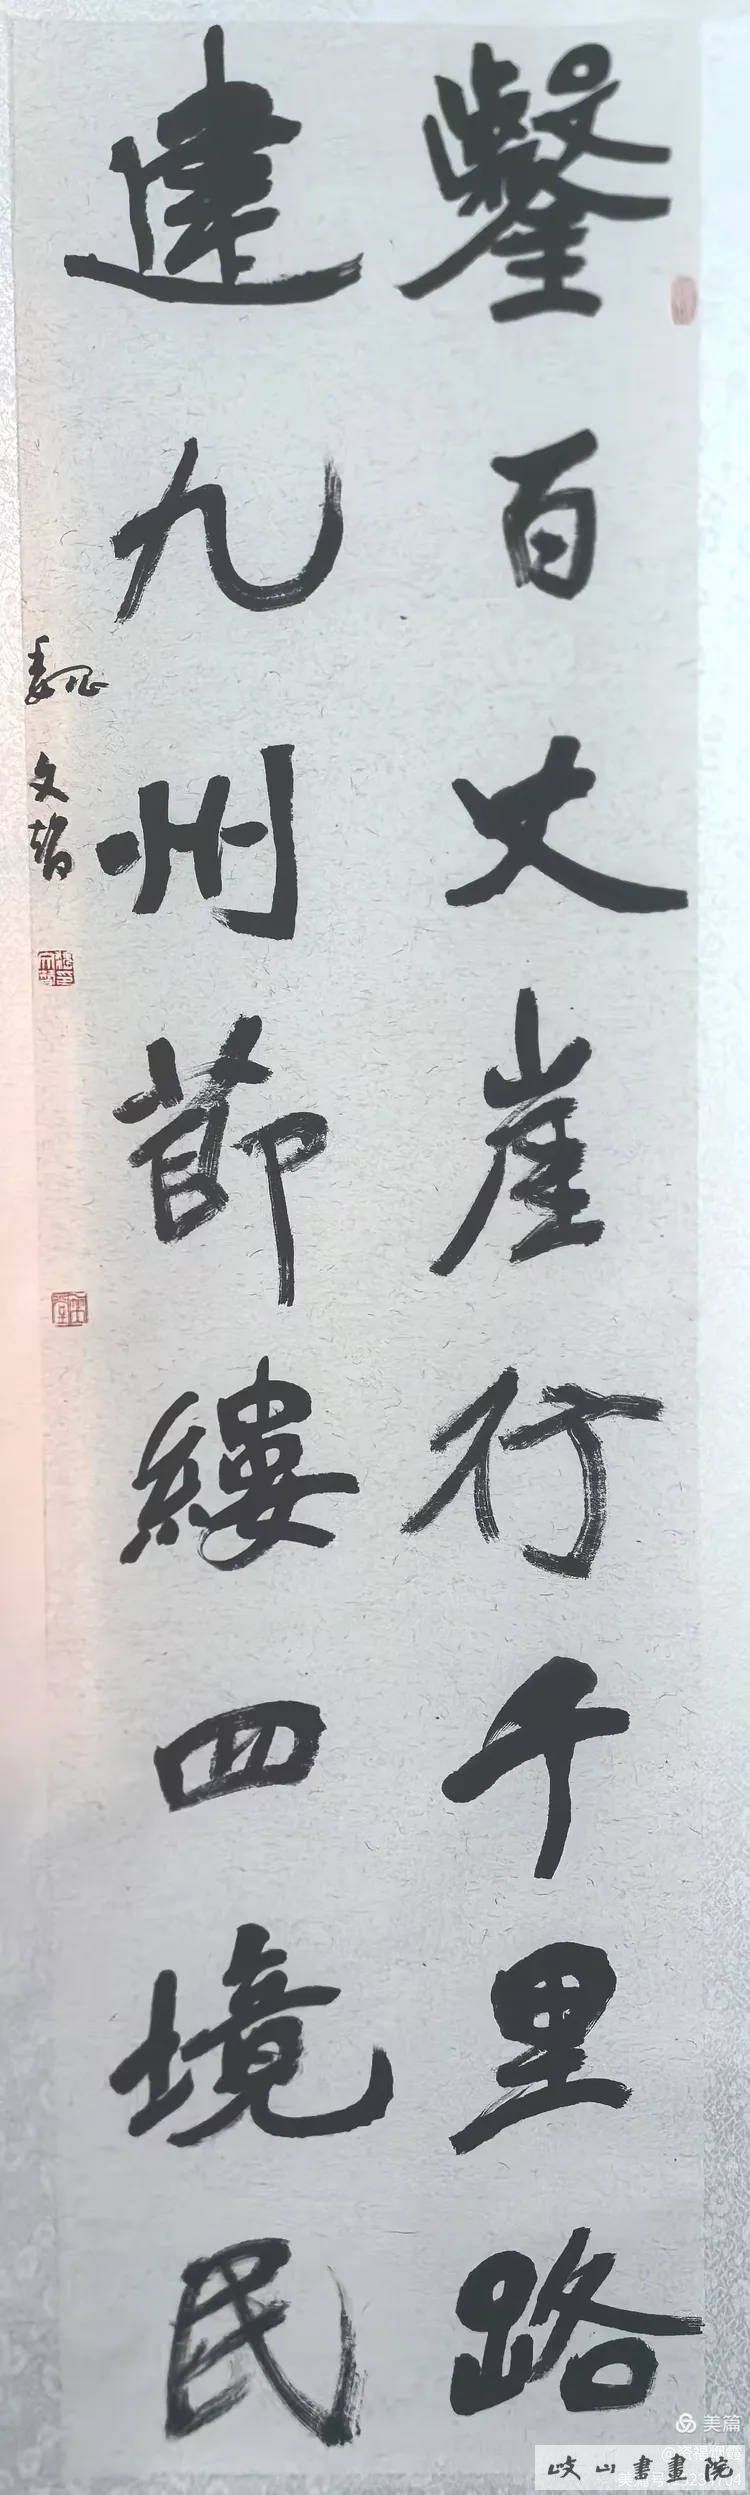 鑿百丈崖行千里路
建九州節縷四境民
文智
美篇
岐山書畫院